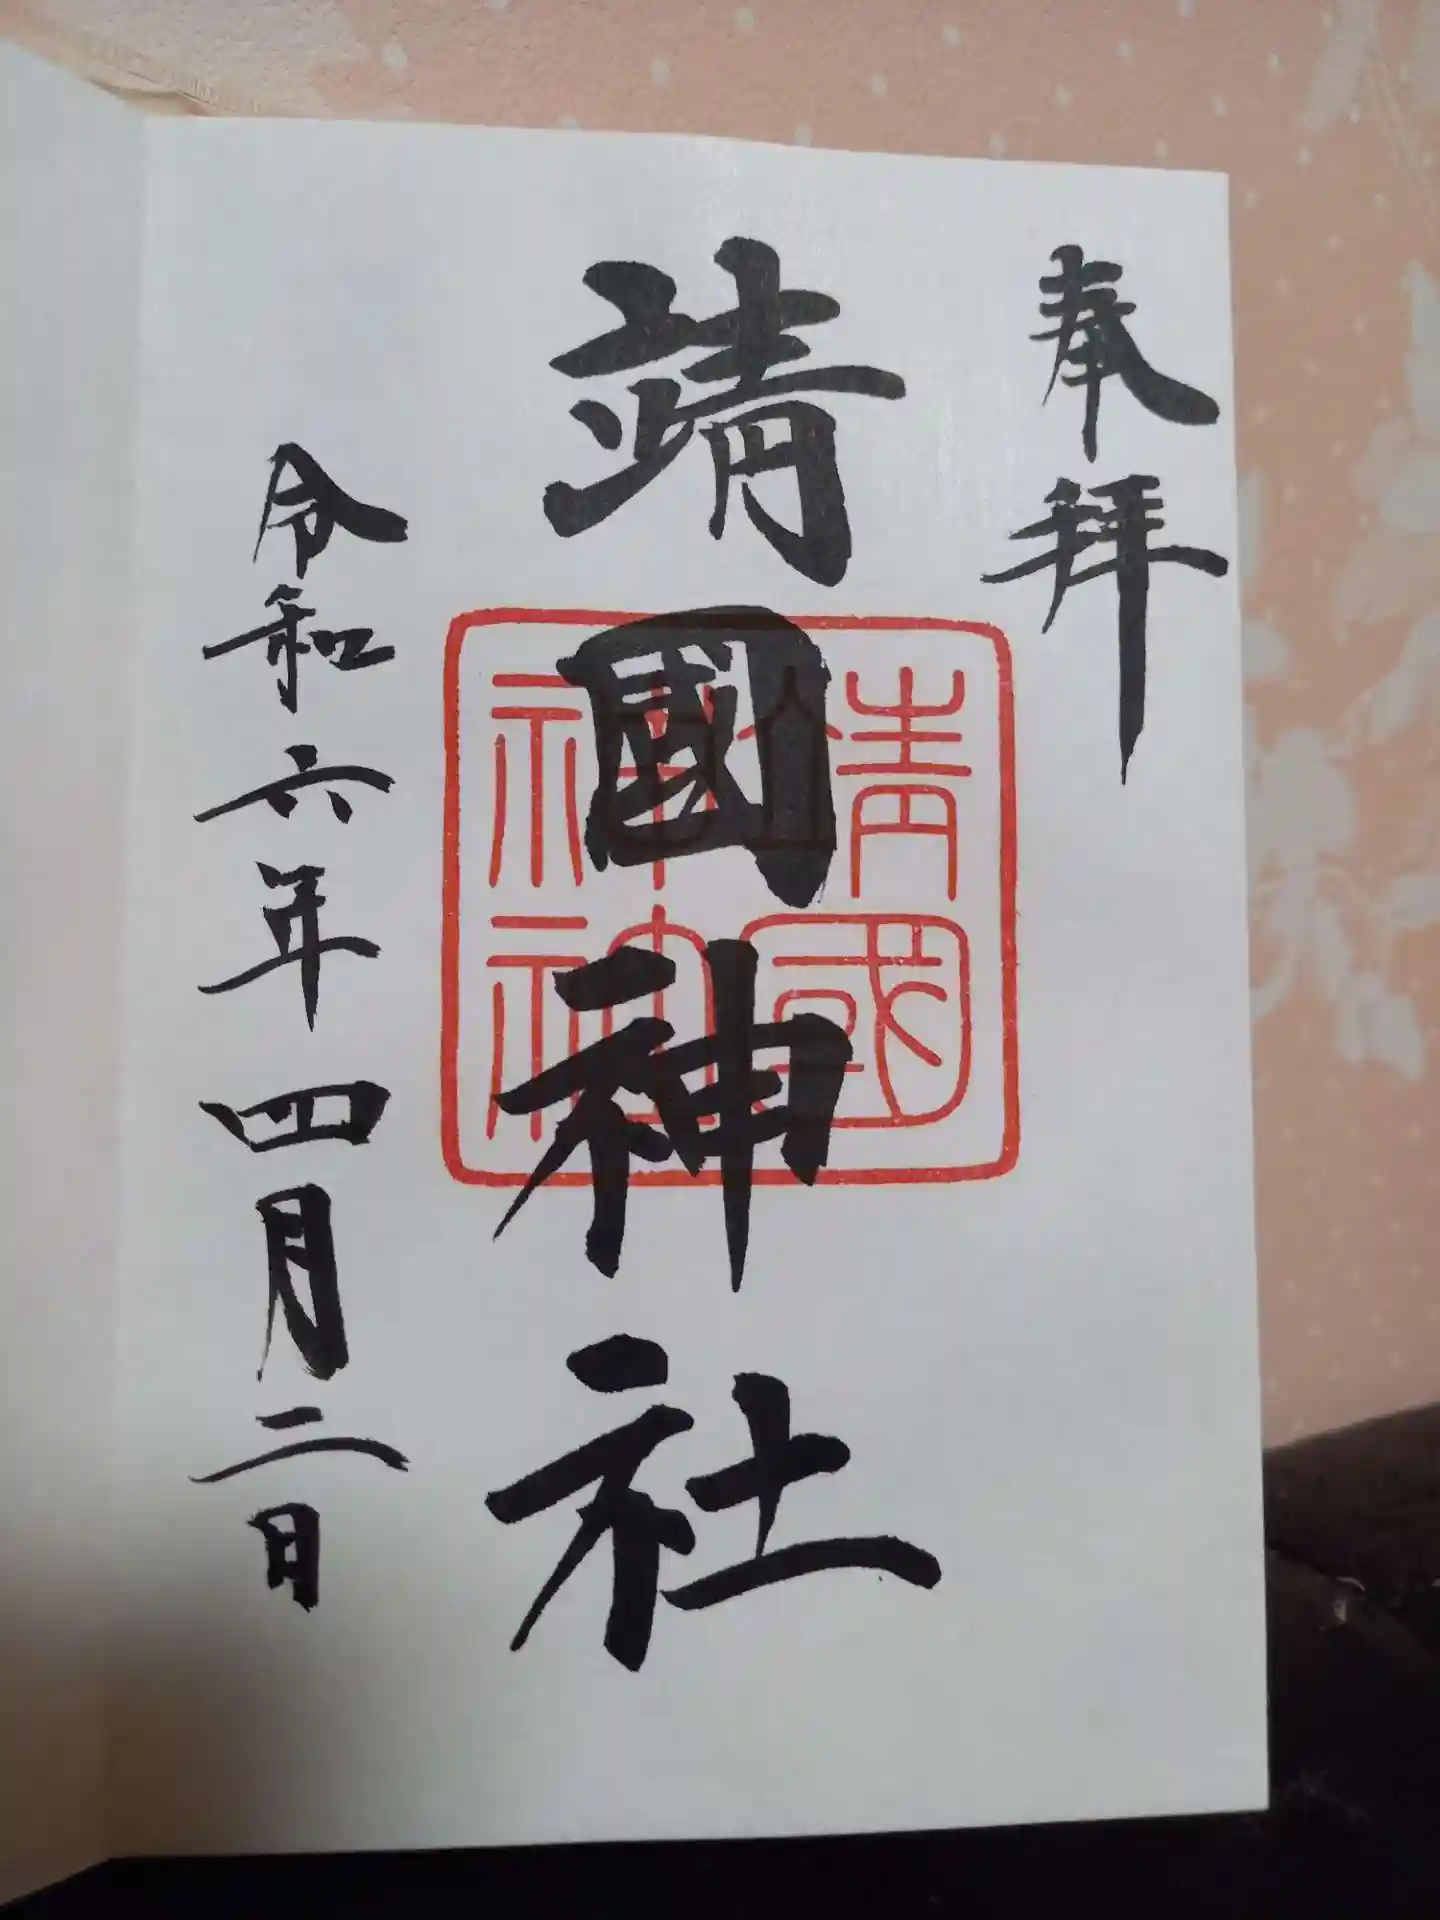 奉拝
靖國神社
靖國
神社
令和六年四月二日